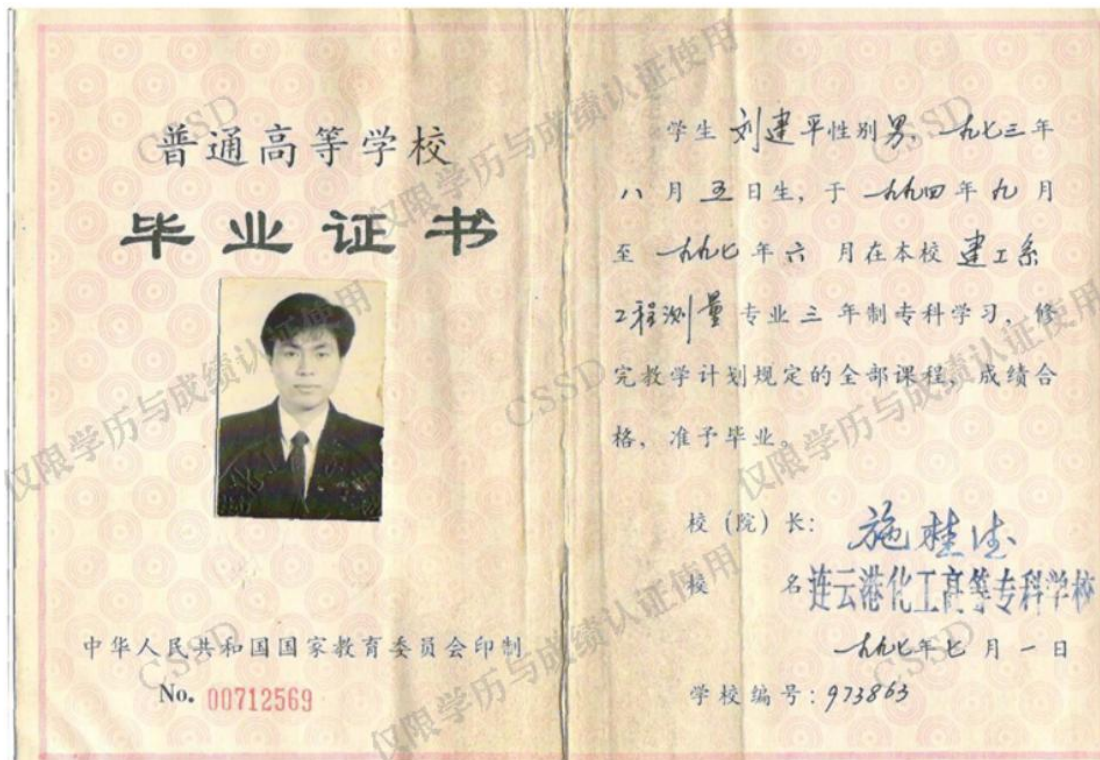 普通高等学校
毕业证书
中华人民共和国国家教育委员会印制
No. 00712569
学生 刘建平 性别 男，一九七三年
八月五日生，于一九九四年九月
至一九九七年六月在本校 建工系
工程测量 专业 三 年制专科学习，修
完教学计划规定的全部课程，成绩合
格，准予毕业。
校（院）长：施桂
校名 连云港化工高等专科学校
一九九七年七月一日
学校编号：973863
CSSD
仅限学历与成绩认证使用